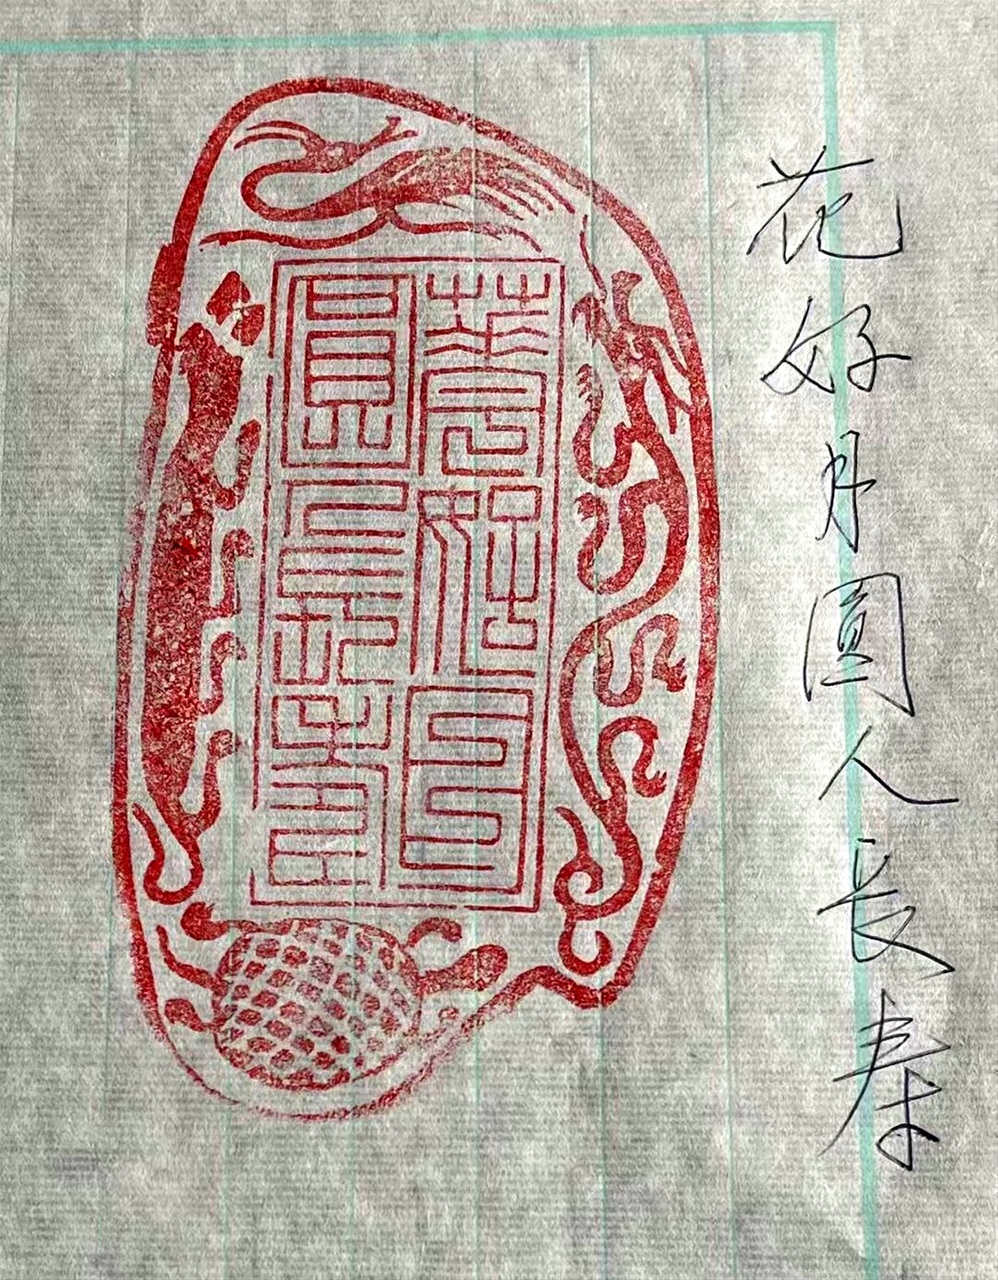 花好月圓人長寿
華好月
圓人長壽